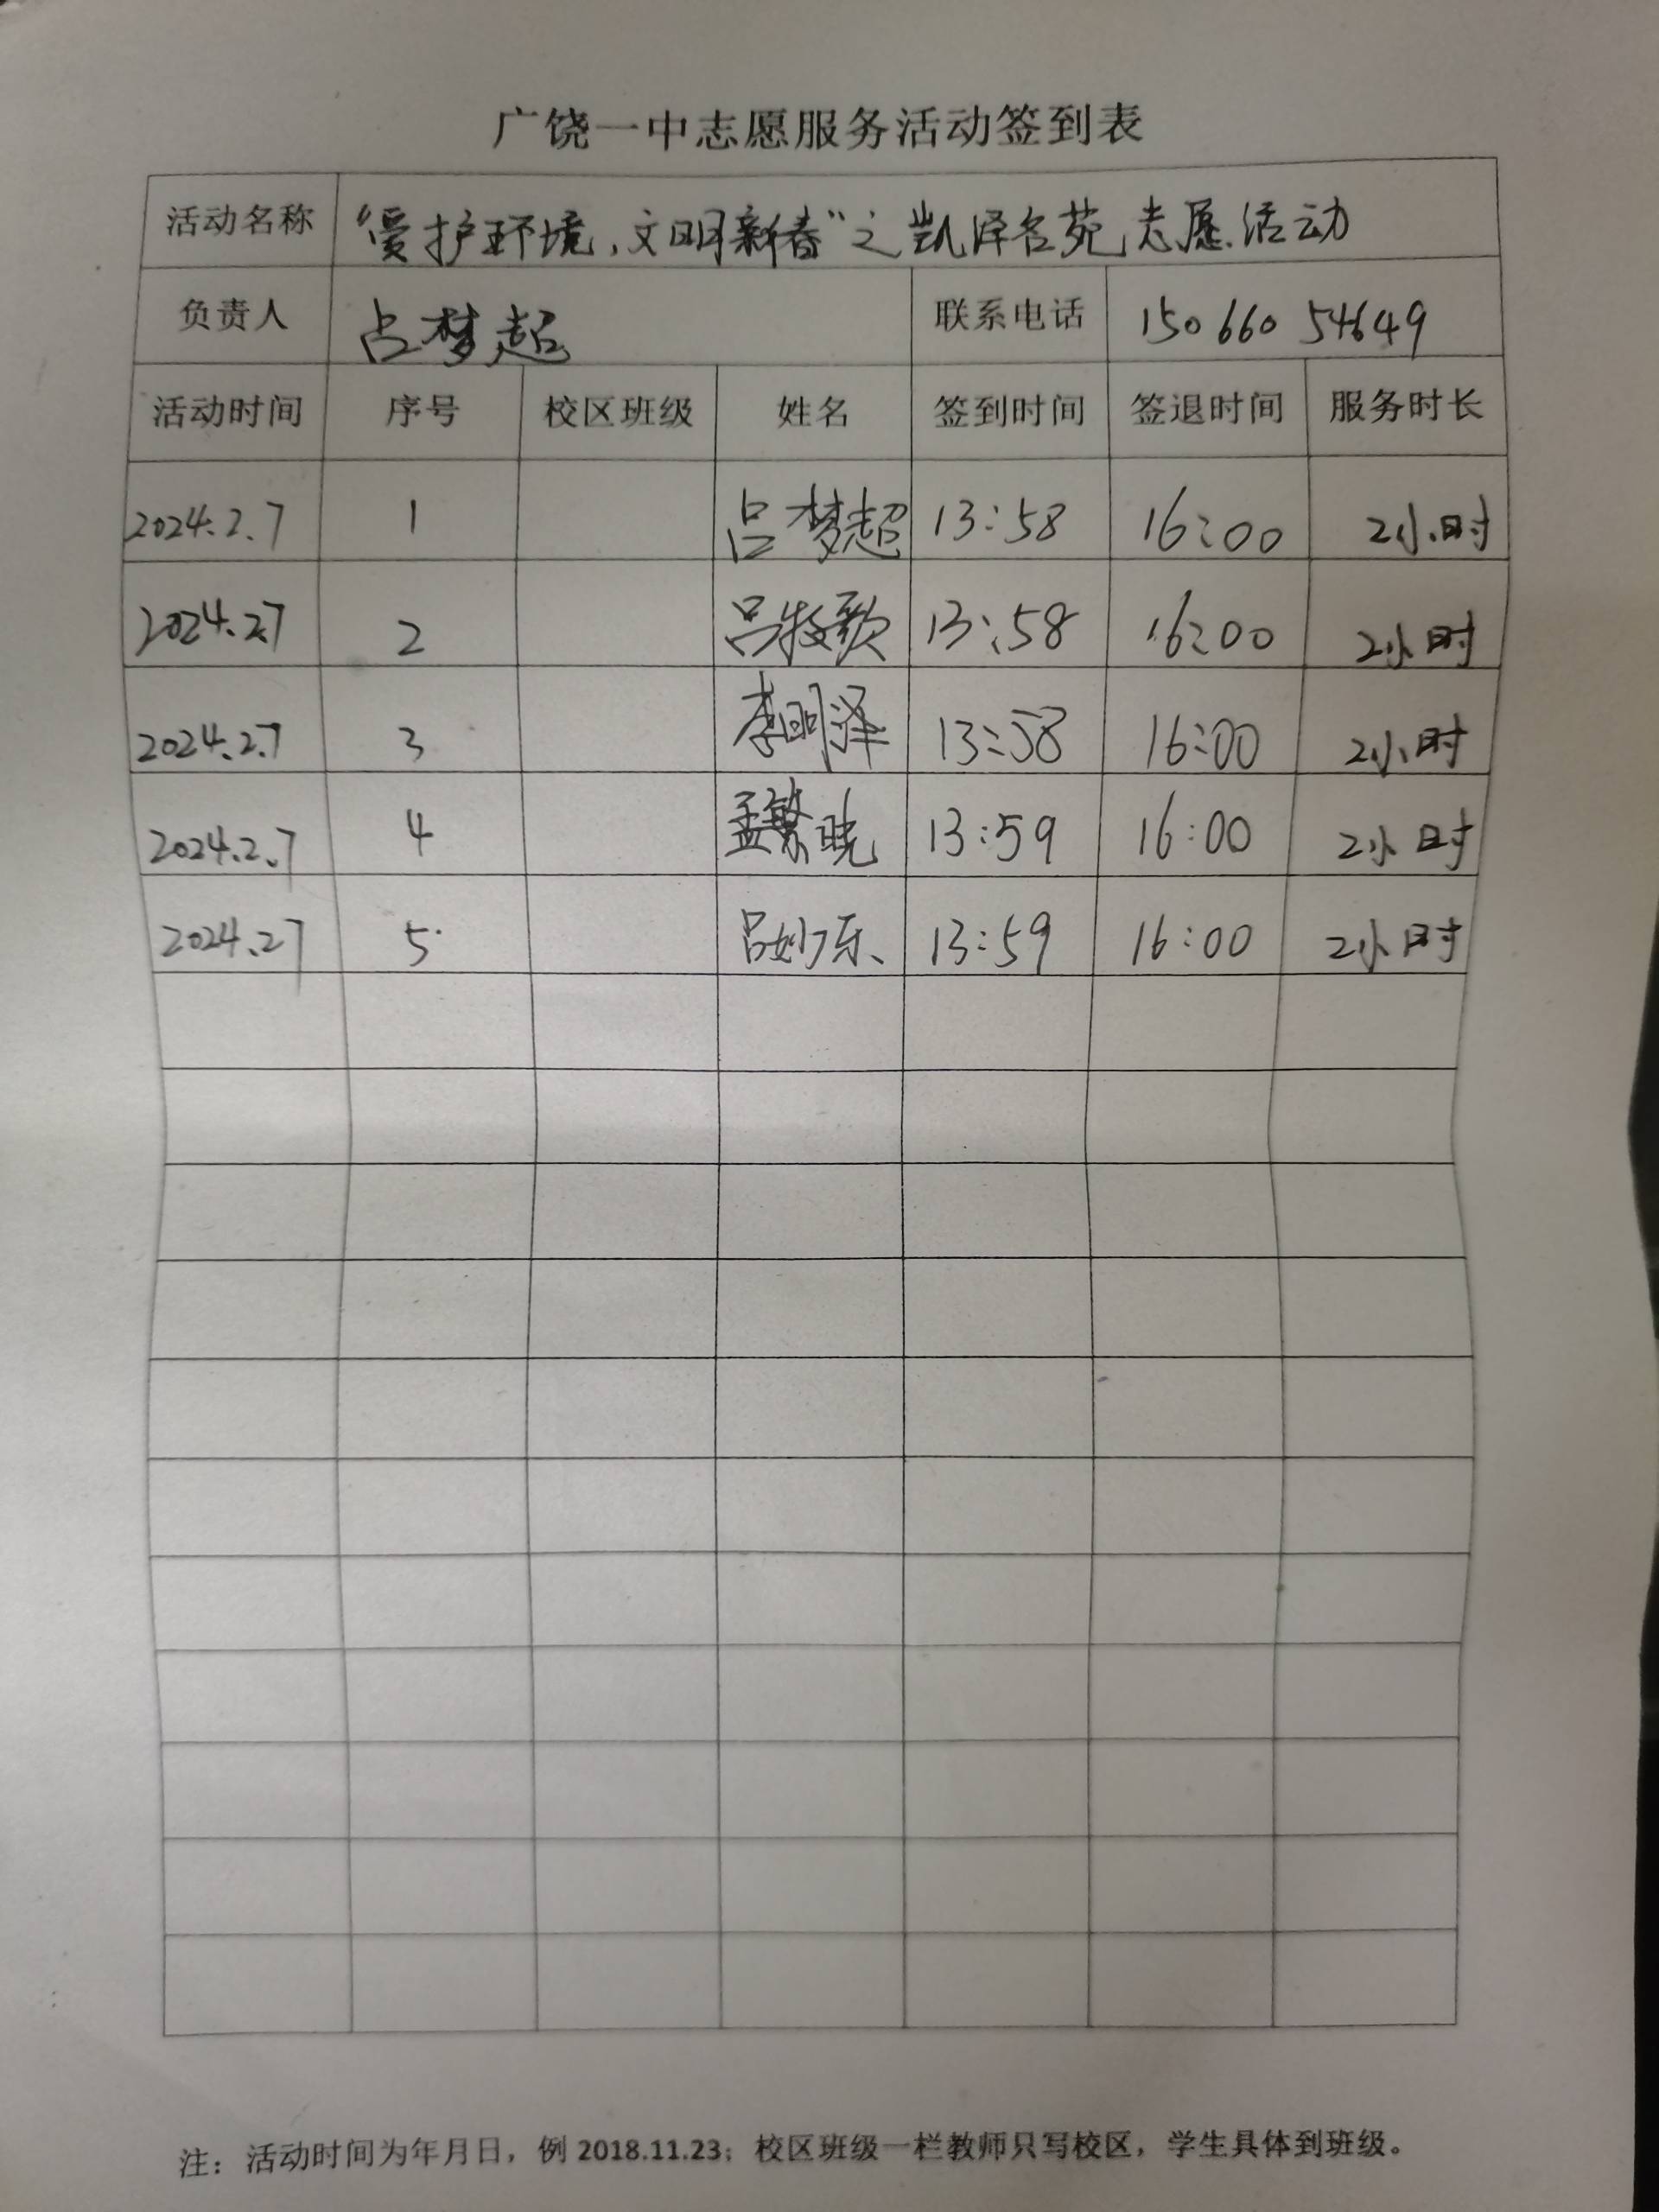 广饶一中志愿服务活动签到表
活动名称 “爱护环境,文明新春”之凯泽名苑志愿活动
负责人 吕梦超 联系电话 15066054649
活动时间 序号 校区班级 姓名 签到时间 签退时间 服务时长
2024.2.7 1 吕梦超 13:58 16:00 2小时
2024.2.7 2 吕牧歌 13:58 16:00 2小时
2024.2.7 3 李明泽 13:58 16:00 2小时
2024.2.7 4 孟繁晓 13:59 16:00 2小时
2024.2.7 5 吕妙乐 13:59 16:00 2小时
注：活动时间为年月日，例 2018.11.23；校区班级一栏教师只写校区，学生具体到班级。